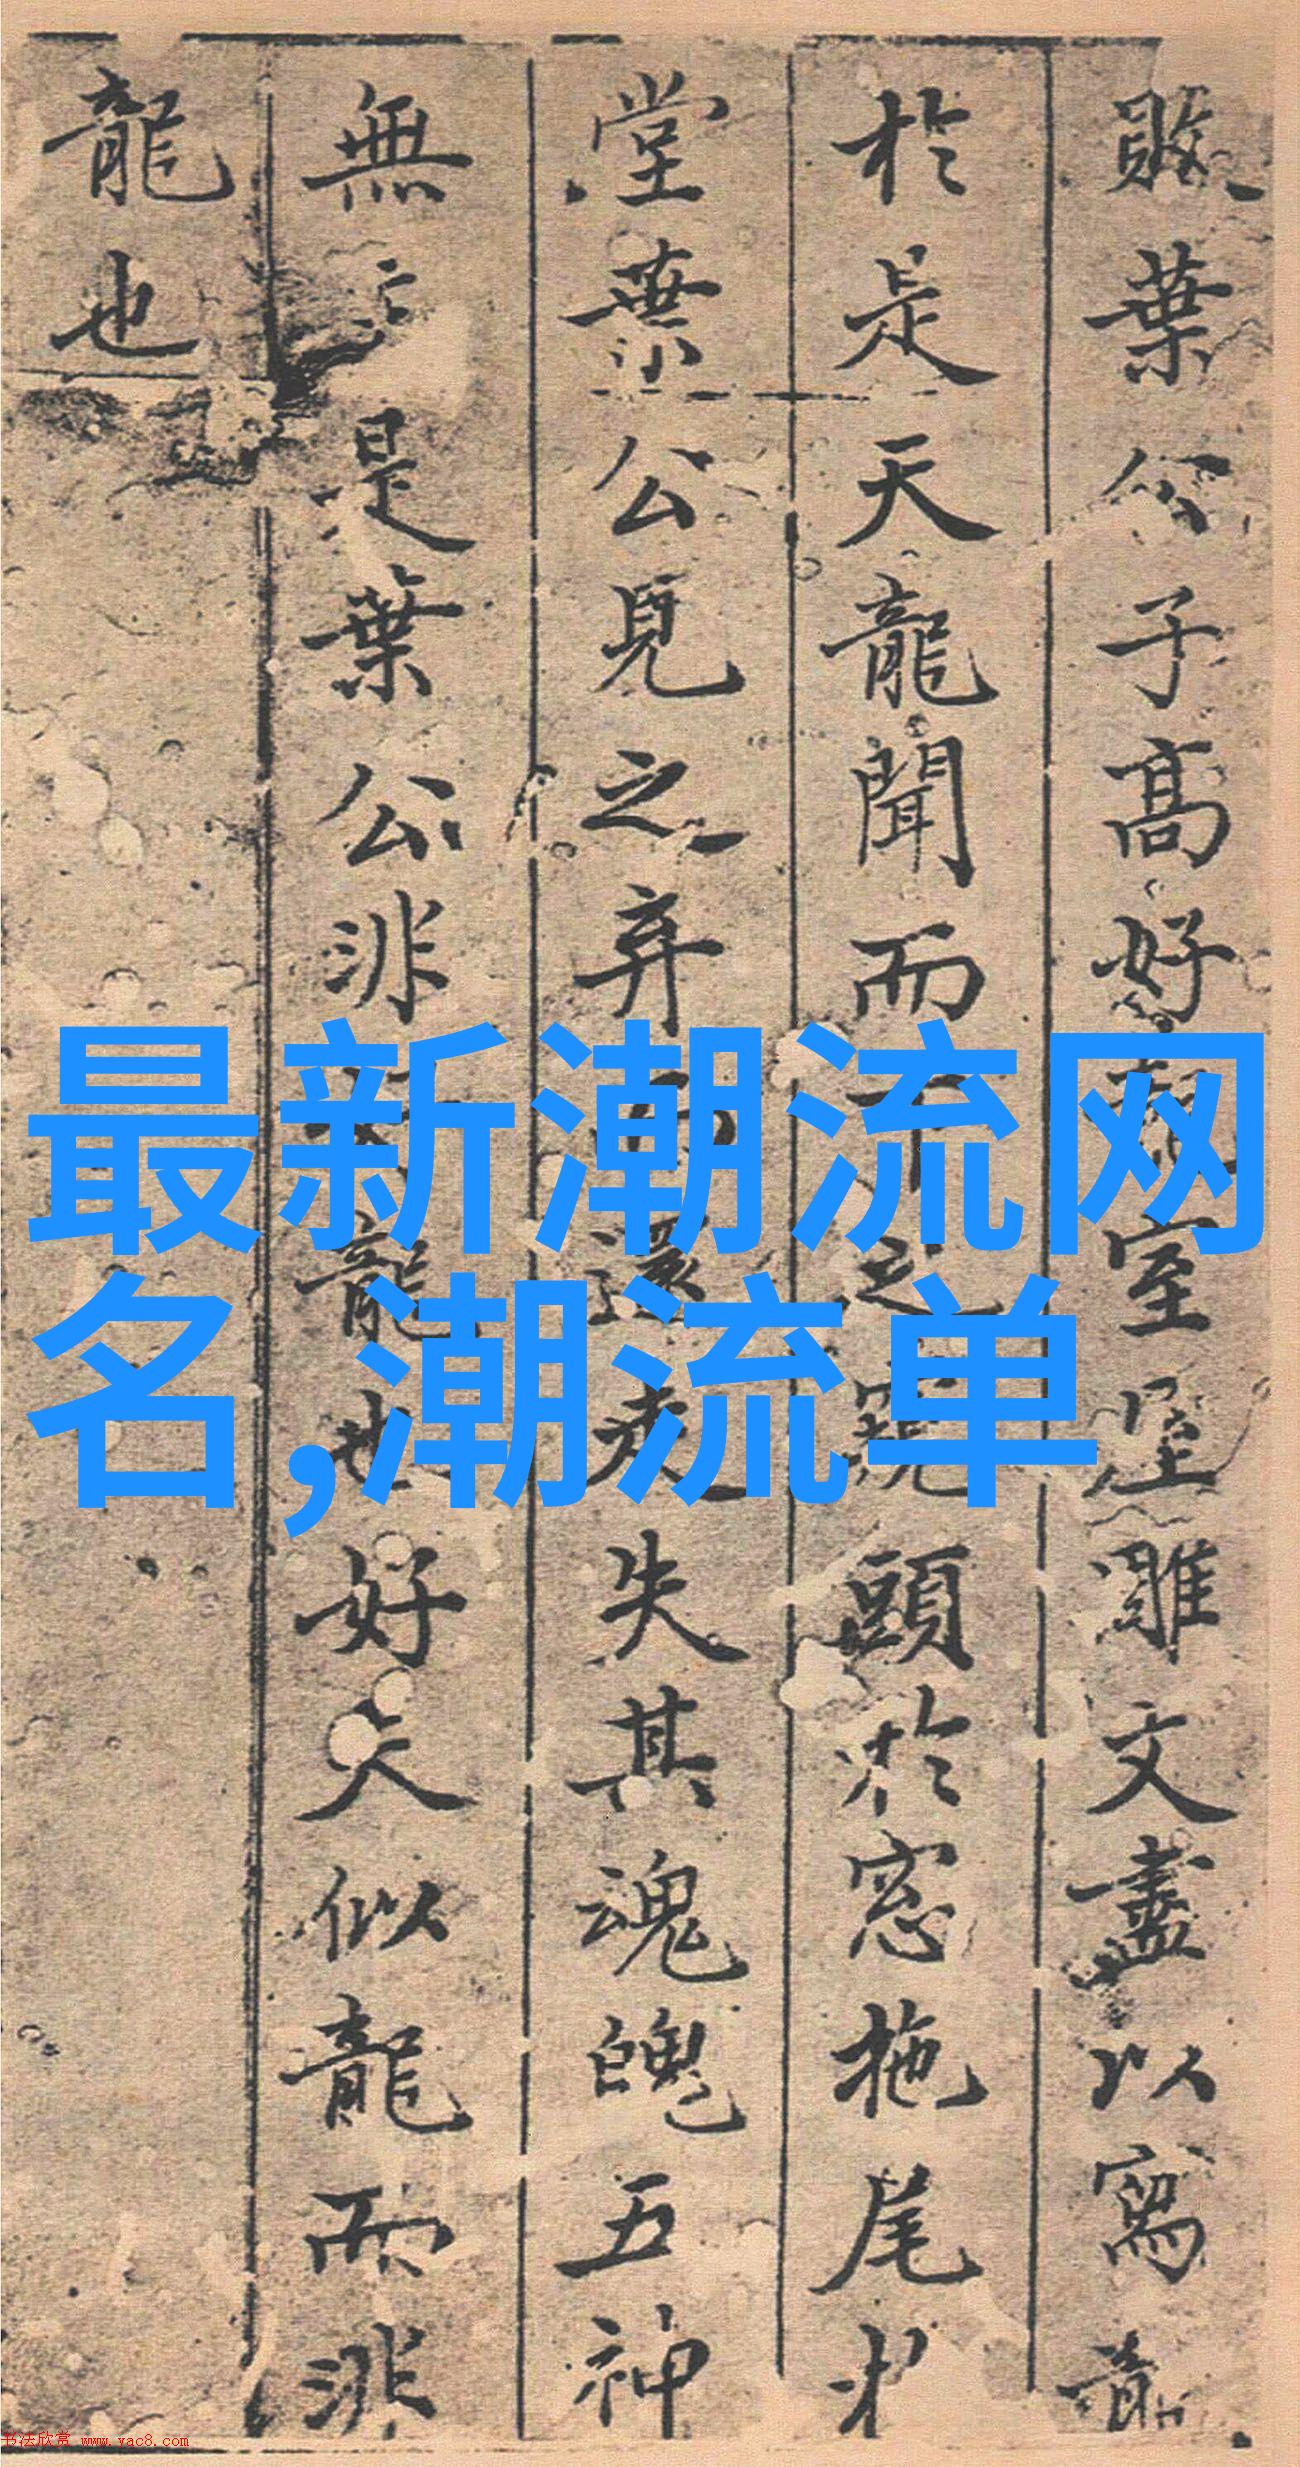 敗葉公子高好龍室屋雕文盡以寫龍
於是天龍聞而下之窺頭於窓拖尾於
堂葉公見之弃而還走失其魂魄五神
無主是葉公非好龍也好夫似龍而非
龍也
最新潮流网
名,潮流单
书法欣赏 www.yac8.com